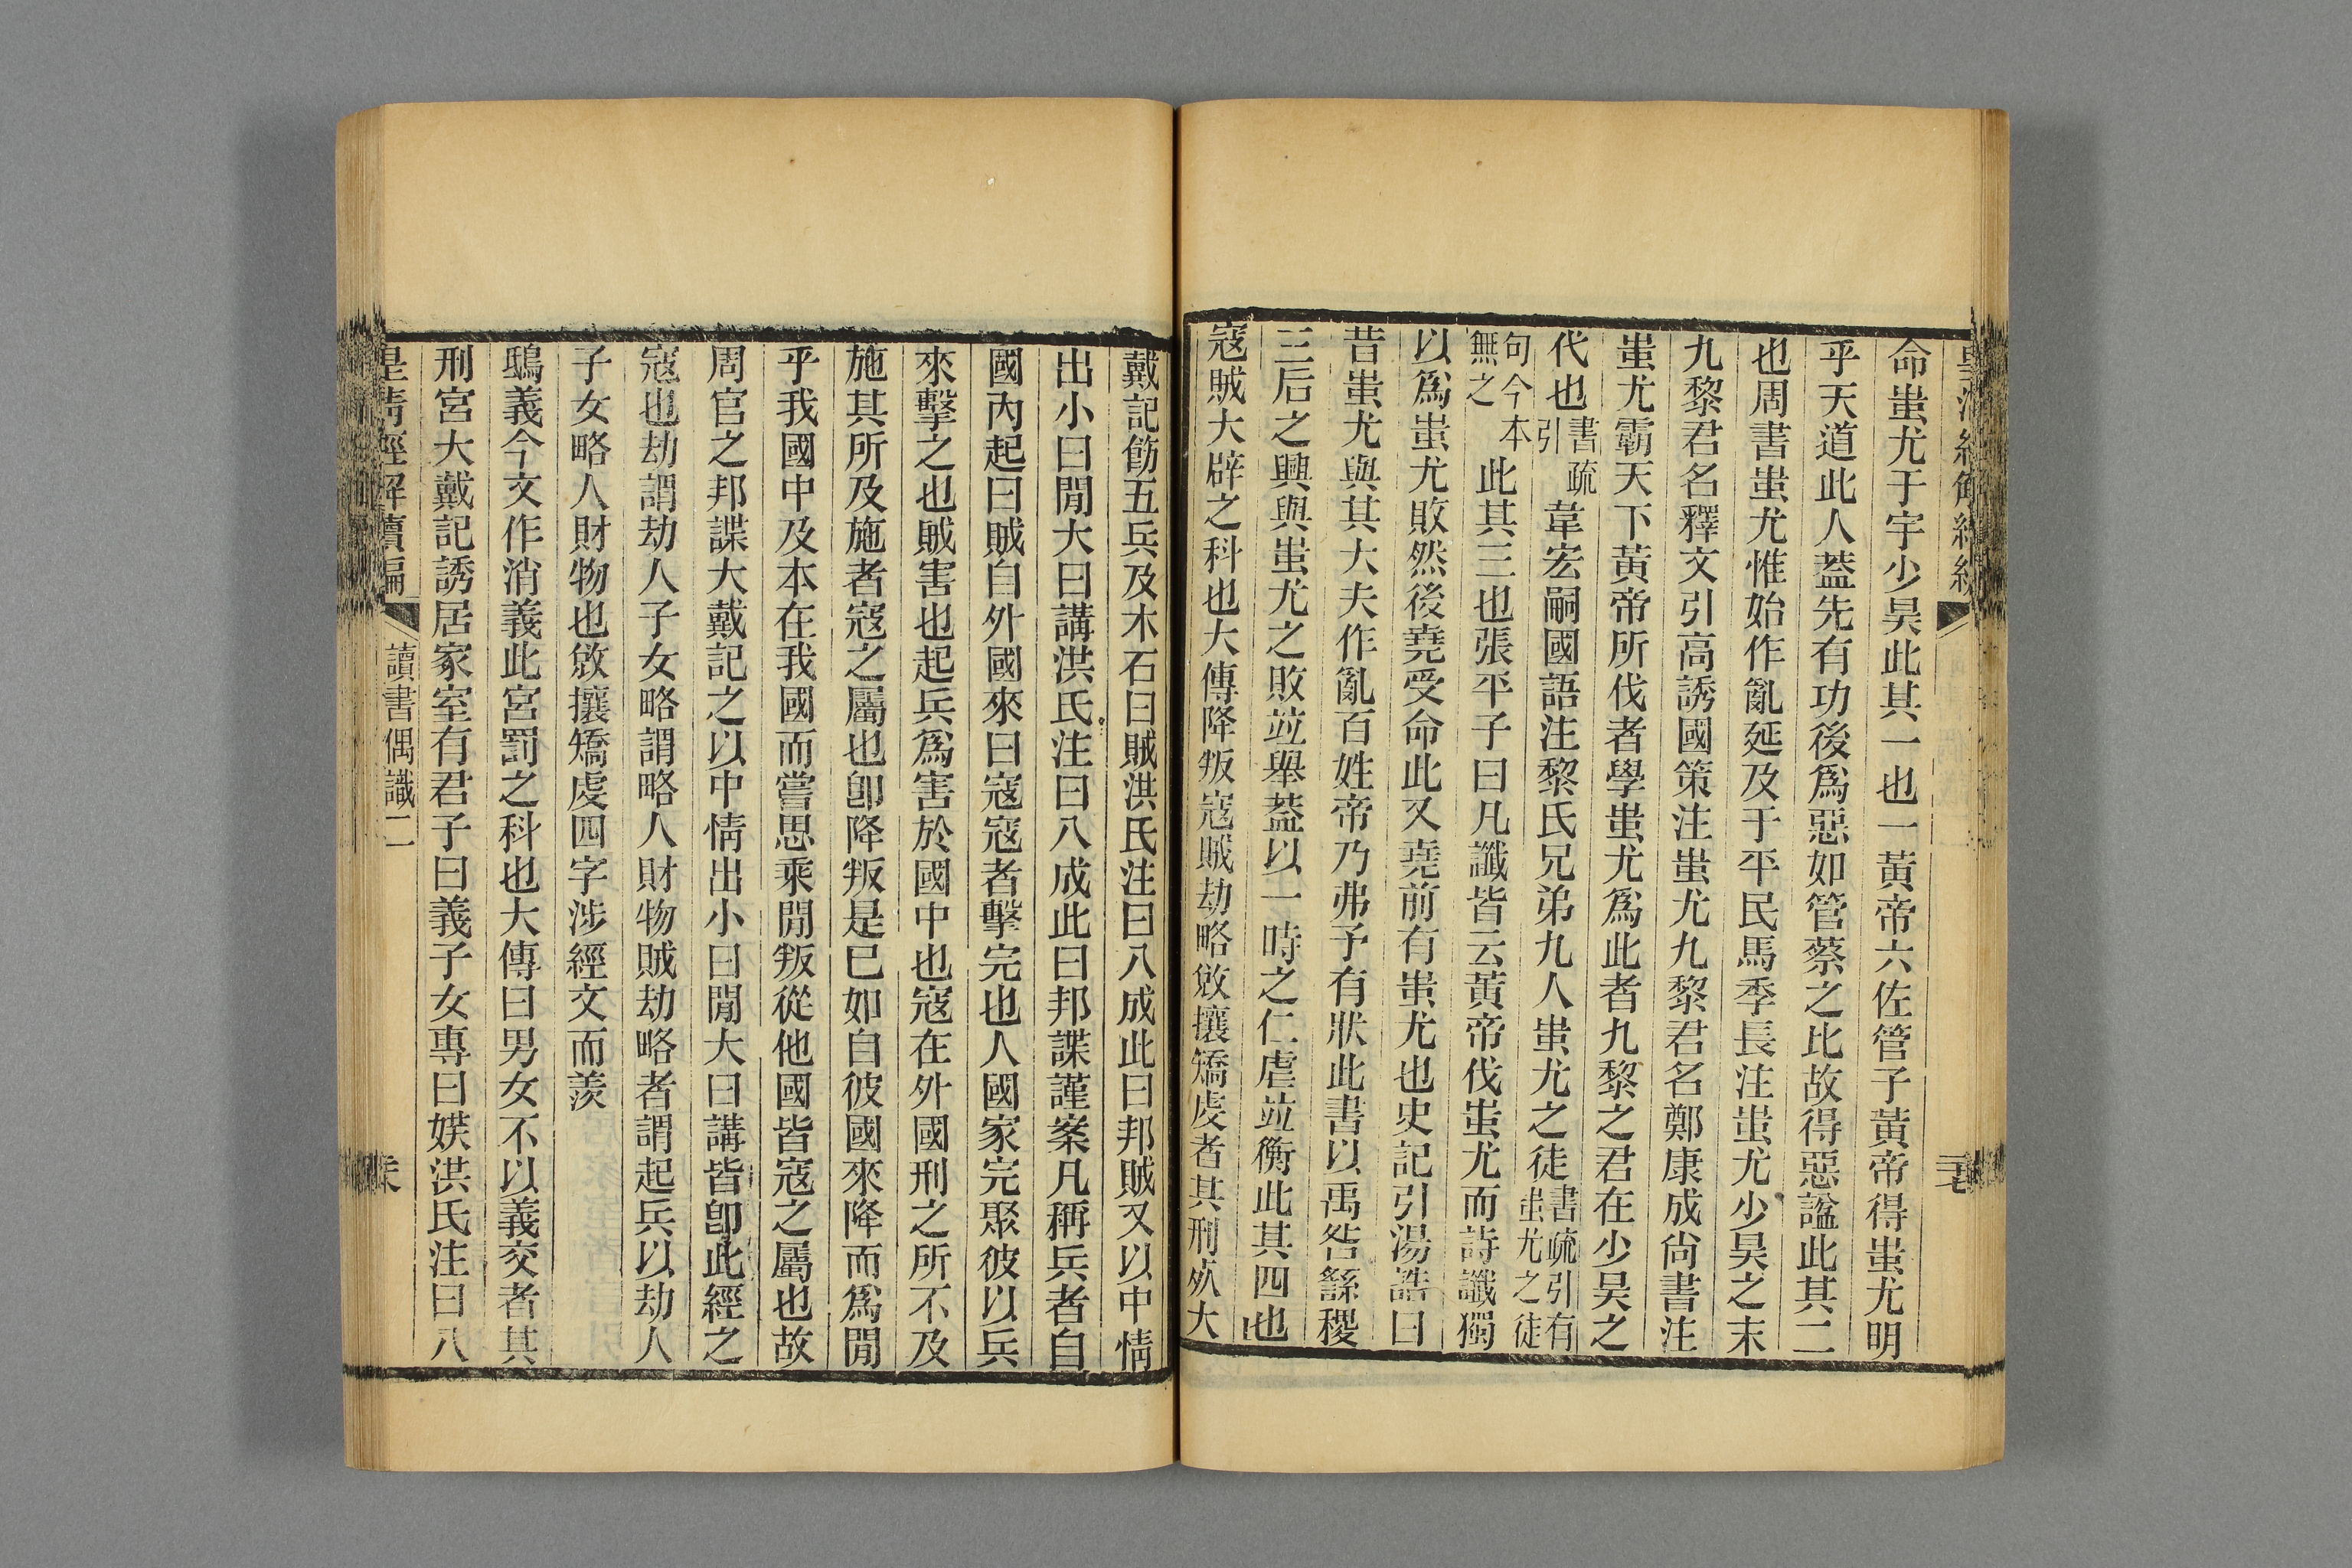 命蚩尤于宇少昊此其一也一黃帝六佐管子黃帝得蚩尤明
乎天道此人葢先有功後爲惡如管蔡之比故得惡諡此其二
也周書蚩尤惟始作亂延及于平民馬季長注蚩尤少昊之末
九黎君名釋文引高誘國策注蚩尤九黎君名鄭康成尙書注
蚩尤霸天下黃帝所伐者學蚩尤爲此者九黎之君在少昊之
代也書疏引韋宏嗣國語注黎氏兄弟九人蚩尤之徒書疏引有蚩尤之徒
句今本無之此其三也張平子曰凡讖皆云黃帝伐蚩尤而詩讖獨
以爲蚩尤敗然後堯受命此又堯前有蚩尤也史記引湯誥曰
昔蚩尤與其大夫作亂百姓帝乃弗予有狀此書以禹咎繇稷
三后之興與蚩尤之敗竝舉葢以一時之仁虐竝衡此其四也
寇賊大辟之科也大傳降叛寇賊劫略敓攘矯虔者其刑死大
戴記飭五兵及木石曰賊洪氏注曰八成此曰邦賊又以中情
出小曰閒大曰講洪氏注曰八成此曰邦諜謹案凡稱兵者自
國內起曰賊自外國來曰寇寇者擊完也人國家完聚彼以兵
來擊之也賊害也起兵爲害於國中也寇在外國刑之所不及
施其所及施者寇之屬也卽降叛是已如自彼國來降而爲閒
乎我國中及本在我國而嘗思乘閒叛從他國皆寇之屬也故
周官之邦諜大戴記之以中情出小曰閒大曰講皆卽此經之
寇也劫謂劫人子女略謂略人財物賊劫略者謂起兵以劫人
子女略人財物也敓攘矯虔四字涉經文而羨
鴟義今文作消義此宮罰之科也大傳曰男女不以義交者其
刑宮大戴記誘居家室有君子曰義子女專曰媄洪氏注曰八
皇清經解續編
讀書偶識二